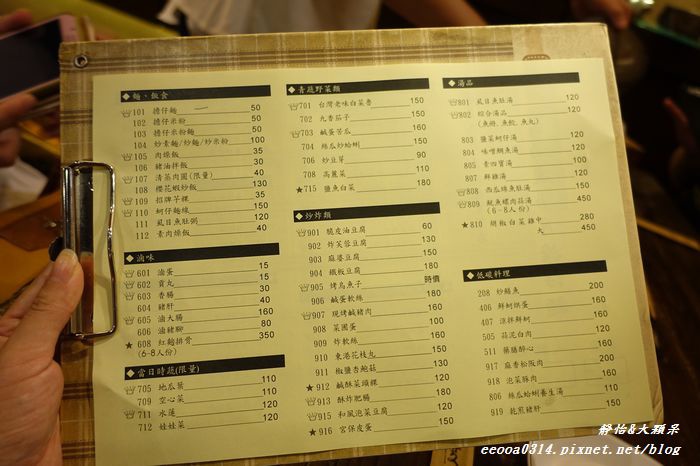 ◆ 麵、飯食
101 擔仔麵 50
102 擔仔米粉 50
103 擔仔米粉麵 50
104 炒素麵/炒麵/炒米粉 100
105 肉燥飯 35
106 豬油拌飯 30
107 清蒸肉圓(限量) 40
108 櫻花蝦炒飯 130
109 招牌芋粿 35
110 蚵仔麵線 110
111 虱目魚肚粥 120
112 素肉燥飯 40
◆ 滷味
601 滷蛋 15
602 貢丸 15
603 香腸 30
604 豬肝 40
605 滷大腸 160
606 滷豬腳 80
★ 608 紅麴排骨 350
(6-8人份)
◆ 當日時蔬(限量)
705 地瓜葉 110
709 空心菜 110
711 水蓮 120
712 娃娃菜 120
◆ 青蔬野菜類
701 台灣老味白菜魯 150
702 九香茄子 150
703 鹹蛋苦瓜 160
704 絲瓜蛤蜊 160
706 炒豆芽 90
708 高麗菜 110
★715 鹽魚白菜 180
◆ 炒炸類
901 脆皮油豆腐 60
902 炸芙蓉豆腐 130
903 麻婆豆腐 150
904 鐵板豆腐 180
905 烤烏魚子 時價
906 鹹蛋軟絲 180
907 現烤鹹豬肉 160
908 菜圃蛋 100
909 炸軟絲 160
910 東港花枝丸 150
911 椒鹽杏鮑菇 130
★ 912 鹹酥菜頭粿 120
913 酥炸肥腸 180
915 和風泡菜豆腐 120
★ 916 宮保皮蛋 150
◆ 湯品
801 虱目魚肚湯 120
802 綜合湯品 120
(魚冊、魚餃、魚丸)
803 鹽菜蚵仔湯 120
804 味噌鯛魚湯 120
805 香四寶湯 100
807 鮮雞湯 120
808 西瓜綿魚肚湯 150
809 魷魚螺肉蒜湯 450
(6-8人份)
★ 810 胡椒白菜雞 中 280
大 450
◆ 低碳料理
208 炒鱔魚 200
406 鮮蚵烘蛋 160
407 涼拌鮮蚵 160
505 蒜泥白肉 120
511 藥膳醉心 160
917 麻香松阪肉 200
918 泡菜豚肉 160
806 絲瓜蛤蜊養生湯 110
919 乾煎豬肝 150
靜怡&大顆呆
eeooa0314.pixnet.net/blog